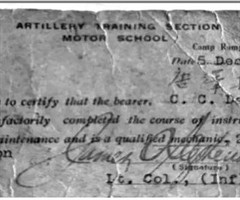 ARTILLERY TRAINING SECTION
MOTOR SCHOOL
Camp
Date 5 Dec
to certify that the bearer, C. C.
factorily completed the course of instru
aintenance and is a qualified mechanic,
on James
(Signature)
Lt. Col., (Inf